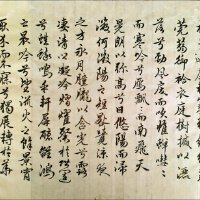 莞蒻御袷衣庭樹槭以灑
落兮勁風戾而吹帷蟬嘒〻
而寒吟兮雁飄〻而南飛天
晃朗以弥高兮日悠陽而浸
微何微陽之短晷覺涼夜
之方永月朣朧以含光兮露
淒清以凝冷熠燿粲於階闥
兮蟋蟀鳴乎軒屏聽離鴻
之晨吟兮望流火之餘景宵
耿介而不寐兮獨展轉於華